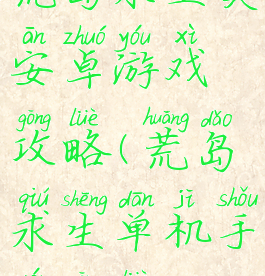 ān zhuó yóu xì
安卓游戏
gōng lüè huāng dǎo
攻略(荒岛
qiú shēng dān jī shǒu
求生单机手